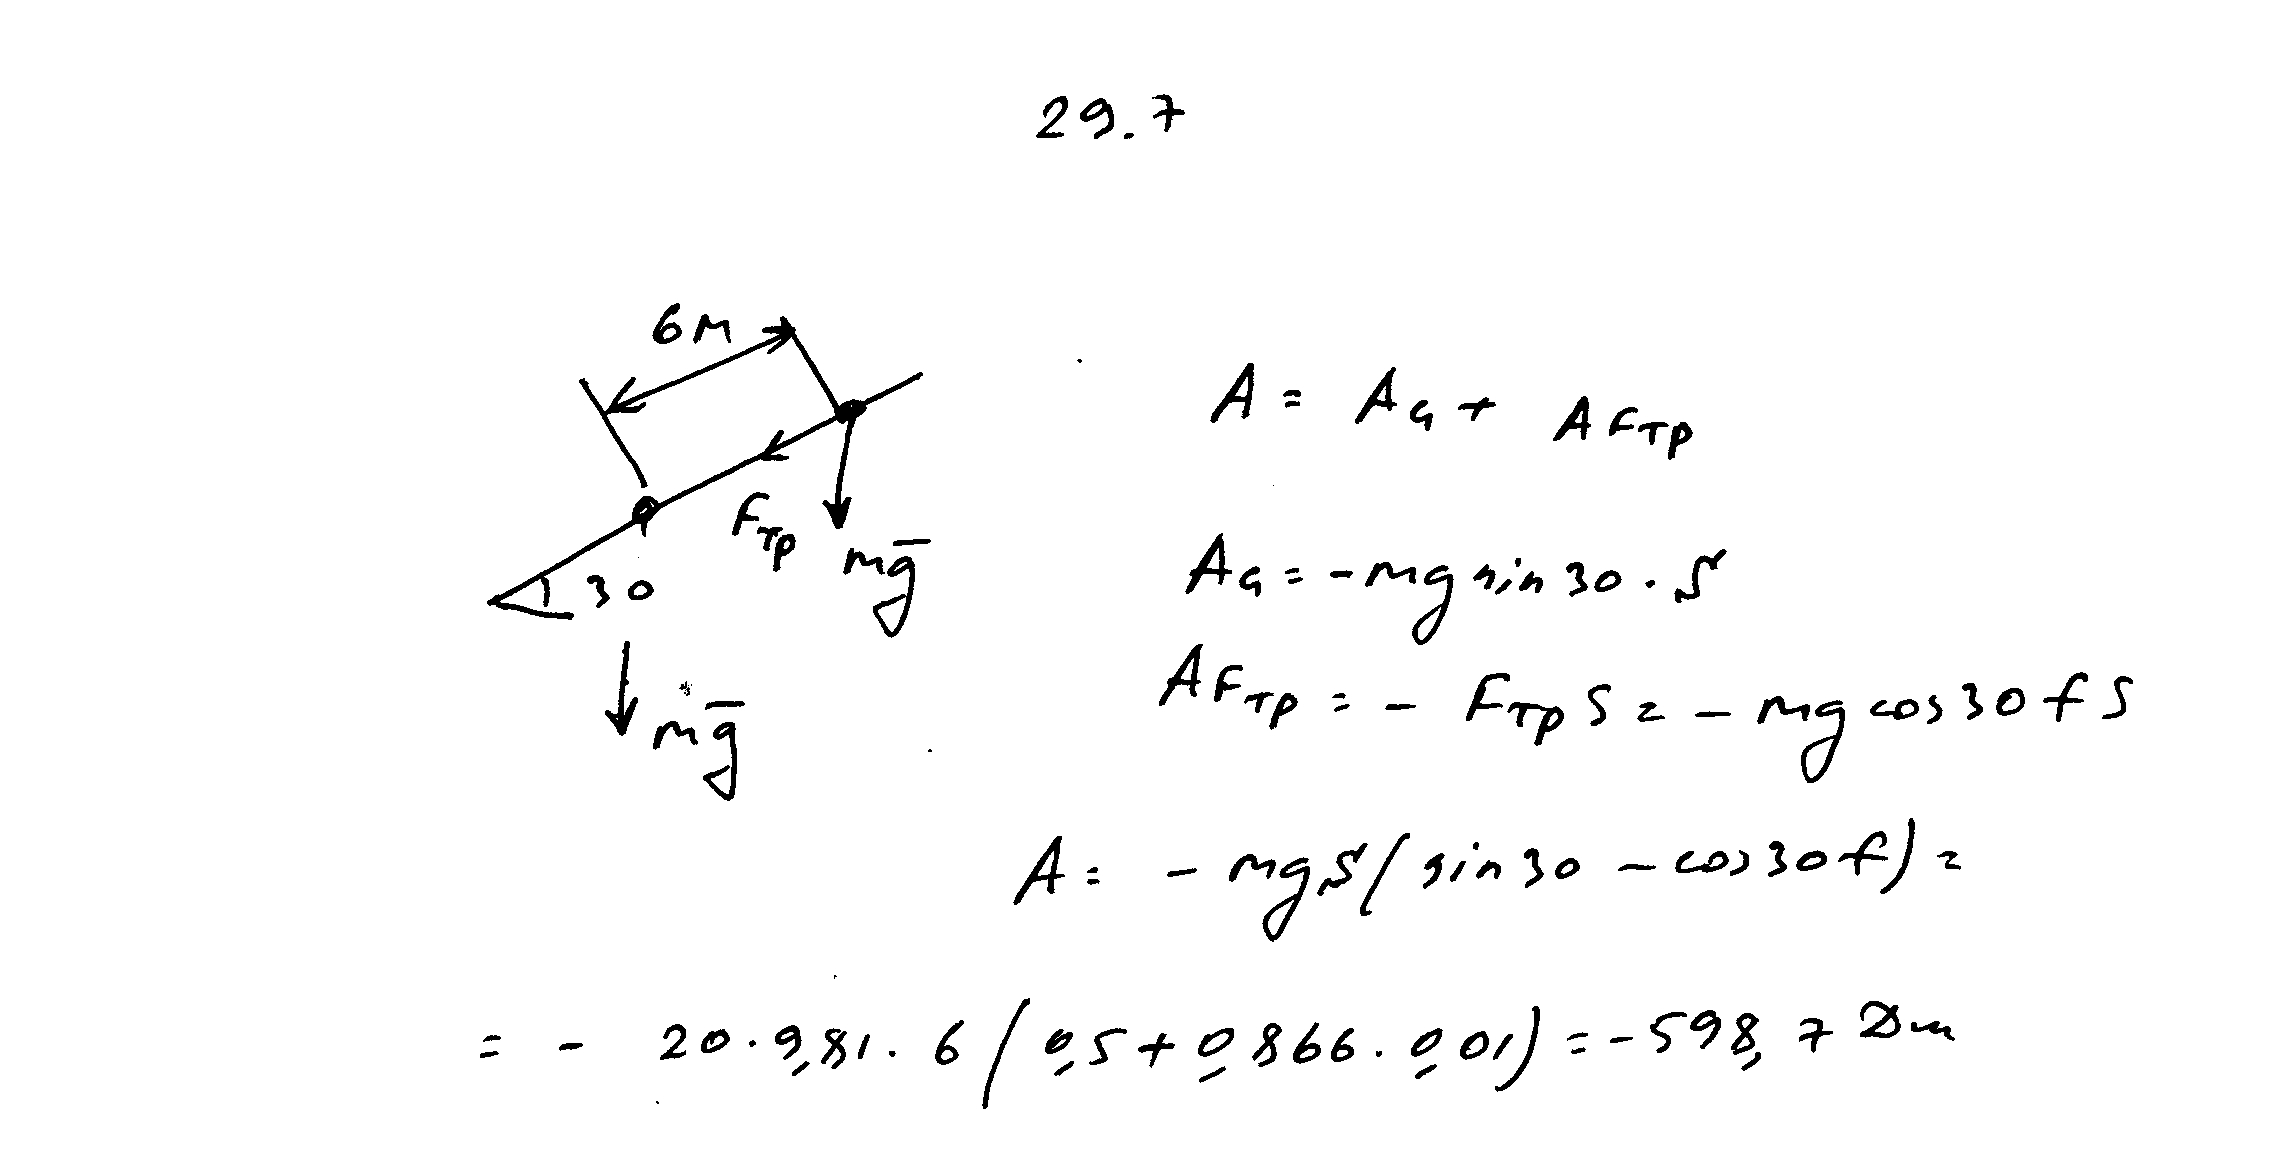 29.7
6м
Fтр
mg̅
30
mg̅
A = A_G + A Fтр
A_G = - mg sin 30 · S
A Fтр = - Fтр S = - mg cos 30 f S
A = - mg S ( sin 30 - cos 30 f ) =
= - 20 · 9,81 · 6 ( 0,5 + 0,866 · 0,01 ) = - 598,7 Дж